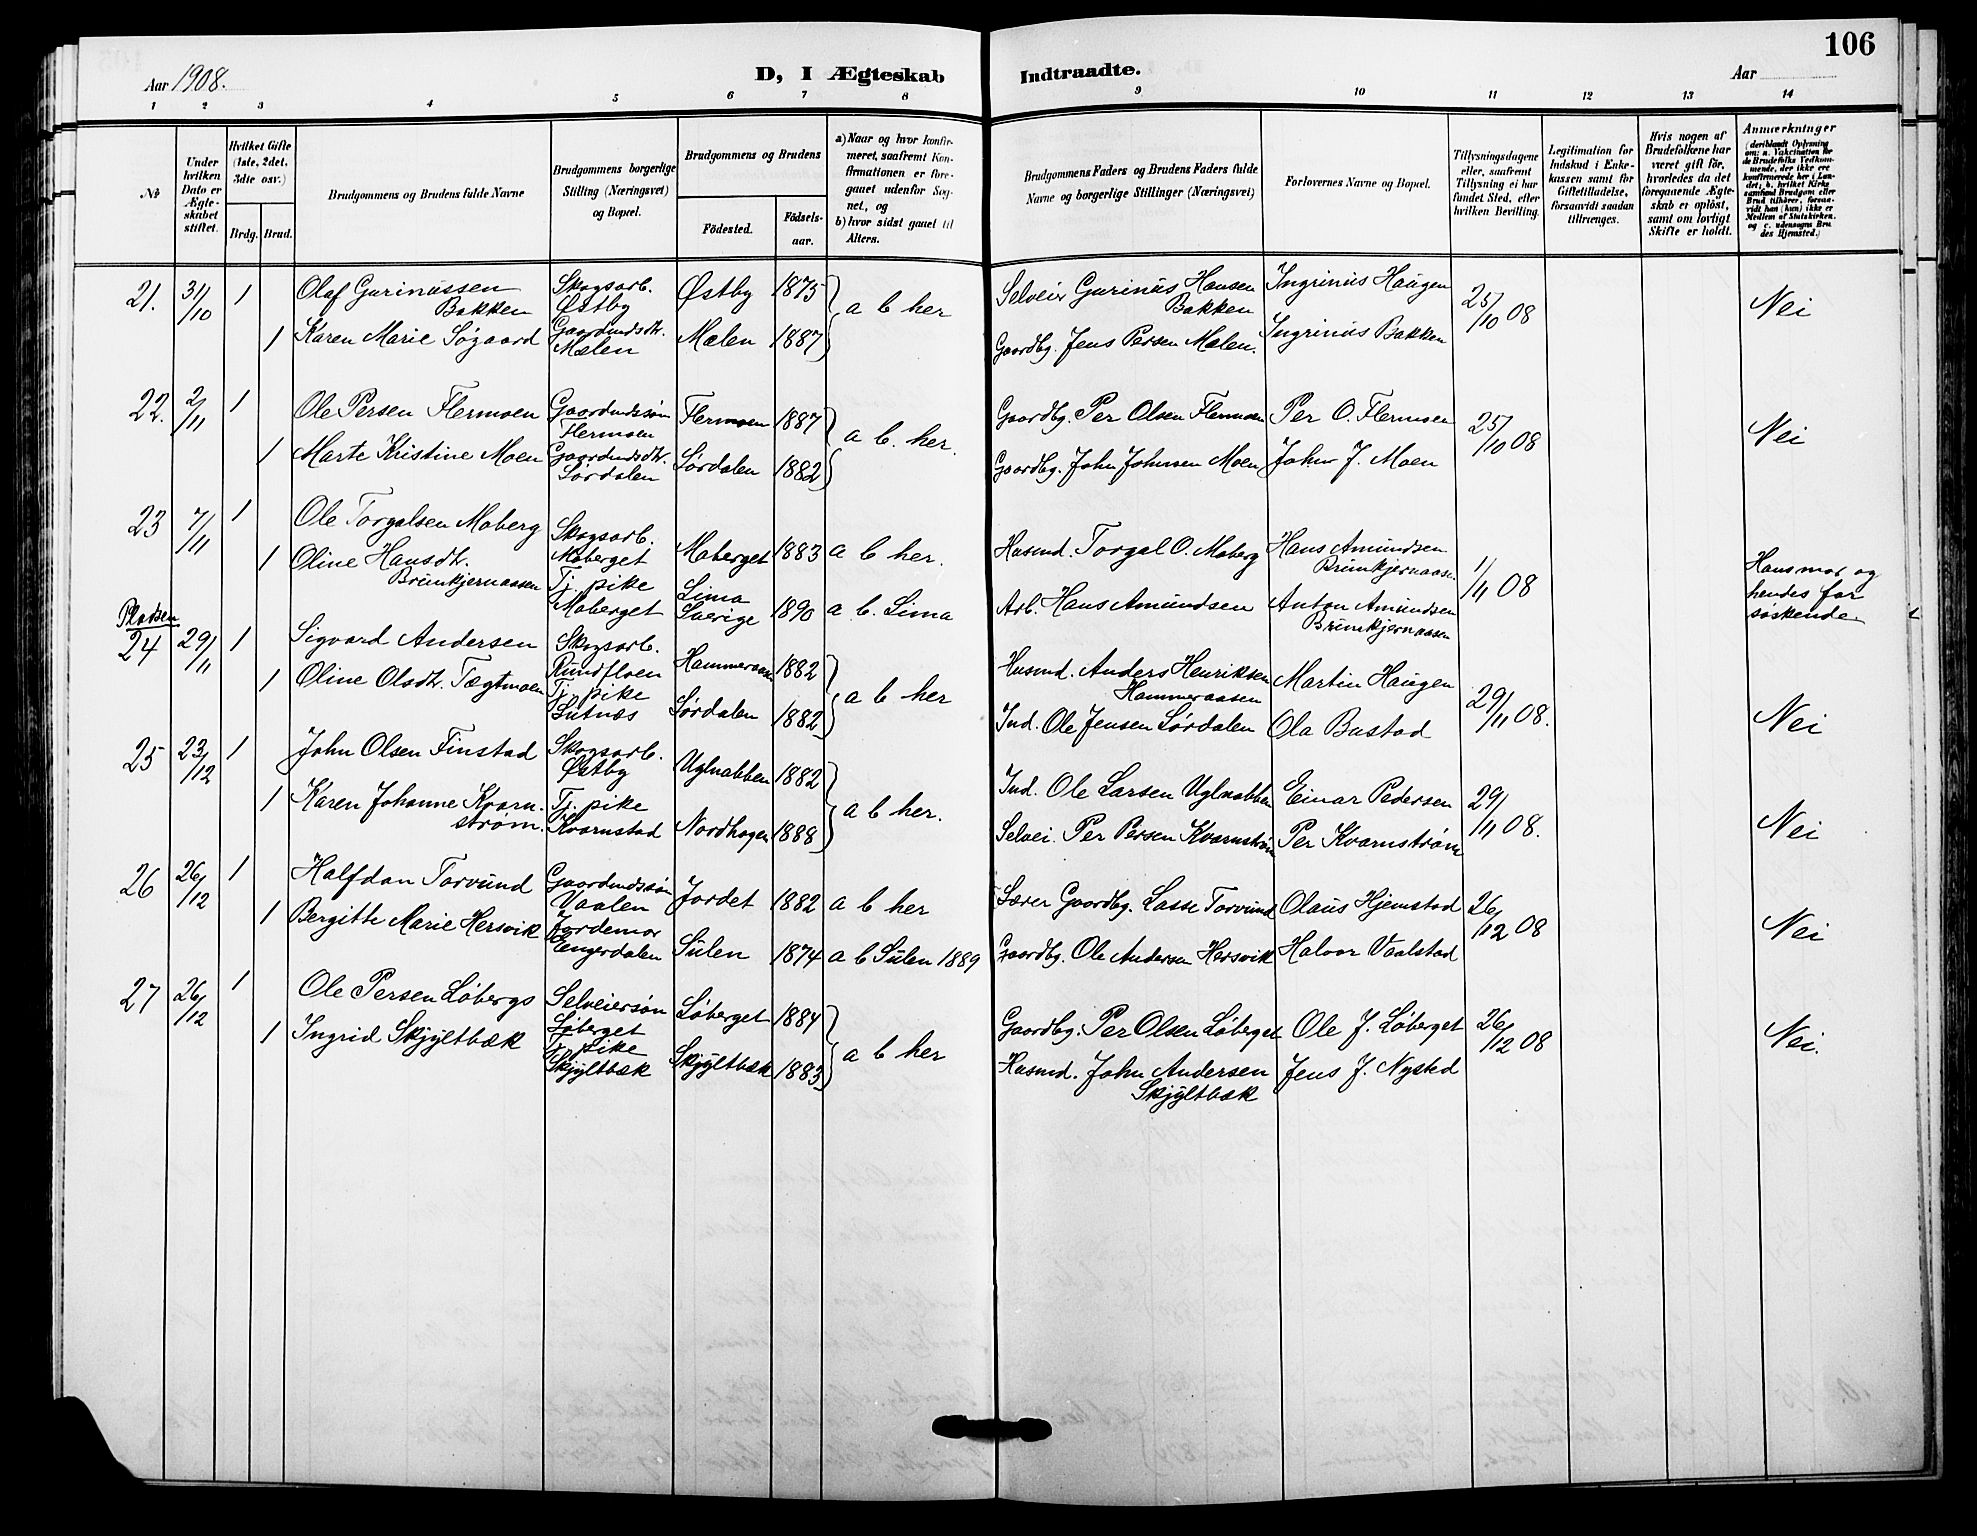 106
Aar 1908.
D, I Ægteskab Indtraadte.
Aar
1 2 3 4 5 6 7 8 9 10 11 12 13 14
No
Under hvilken Dato er Ægteskabet stiftet.
Hvilket Gifte (1ste, 2det, 3die osv.)
Brdg. Brud.
Brudgommens og Brudens fulde Navne
Brudgommens borgerlige Stilling (Næringsvei) og Bopæl.
Brudgommens og Brudens
Fødested. Fødsels-aar.
a) Naar og hvor konfirmeret, saafremt Konfirmationen er foregaaet udenfor Sognet, og
b) hvor sidst gaaet til Alters.
Brudgommens Faders og Brudens Faders fulde Navne og borgerlige Stillinger (Næringsvei)
Forlovernes Navne og Bopæl.
Tillysningsdagene eller, saafremt Tillysning ei har fundet Sted, efter hvilken Bevilling.
Legitimation for Indskud i Enkekassen samt for Giftetilladelse, forsaavidt saadan tiltrænges.
Hvis nogen af Brudefolkene har været gift før, hvorledes da det foregaaende Ægteskab er opløst, samt om lovligt Skifte er holdt.
Anmærkninger (deriblandt Oplysning om: a. Vakcination for de Brudefolks Vedkommende, der ikke ere konfirmerede her i Landet; b. hvilket Kirkesamfund Brudgom eller Brud tilhører, forsaavidt han (hun) ikke er Medlem af Statskirken, og c. udensogns Brudes Hjemsted.)
21. 31/10 1 Olaf Gurinussen Bakken Skogsarb. Østby Østby 1875 a b her Selveier Gurinus Hansen Bakken Ingrinus Haugen 25/10 08 Nei
1 Karen Marie Søgaard Gaardmdsdtr. Mælen Mælen 1887 Gaardbg. Jens Persen Mælen. Ingrinus Bakken
22. 2/11 1 Ole Persen Flermoen Gaardmdssøn Flermoen Flermoen 1887 a b. her. Gaardbg. Per Olsen Flermoen Per O. Flermoen 25/10 08 Nei
1 Marte Kristine Moen Gaardmdsdtr. Sørdalen Sørdalen 1882 Gaardbg. John Johnsen Moen John J. Moen
23 7/11 1 Ole Torgalsen Moberg Skogsarb. Moberget Moberget 1883 a b her. Husmd. Torgal O. Moberg Hans Amundsen Brunkjernaasen 1/11 08 Hans mor og hendes far søskende
1 Oline Hansdtr. Brunkjernaasen Tj. pike Moberget Lima Sverige 1890 a b. Lima Arb. Hans Amundsen Anton Amundsen Brunkjernaasen
Pladsen
24 29/11 1 Sigvard Andersen Skogsarb. Rundfloen Hammeraasen 1882 a b her Husmd. Anders Henriksen Hammeraasen Martin Haugen 29/11 08. Nei
1 Oline Olsdtr. Tægtmoen Tj. pike Lutnæs Sørdalen 1882 Ind. Ole Jensen Sørdalen Ola Bustad
25 23/12 1 John Olsen Finstad Skogsarb. Østby Uglnabben 1882 a b her. Ind. Ole Larsen Uglnabben Einar Pedersen 29/11 08. Nei
1 Karen Johanne Kvarnstrøm. Tj. pike Kvarnstad Nordhagen 1888 Selvei. Per Persen Kvarnstrøm Per Kvarnstrøm
26 26/12 1 Halfdan Torvund Gaardmdssøn Vaalen Jordet 1882 a b her Lærer Gaardbg. Lasse Torvund Olaus Hjemstad 26/12 08 Nei
1 Bergitte Marie Hersvik Jordemor Engerdalen Sulen 1874 a b Sulen 1889 Gaardbg. Ole Andersen Hersvik Halvor Vaalstad
27 26/12 1 Ole Persen Løbergs Selveiersøn Løberget Løberget 1884 a b her Gaardbg. Per Olsen Løberget Ole J. Løberget 26/12 08 Nei.
1 Ingrid Skjyltbæk Tj. pike Skjyltbæk Skjyltbæk 1883 Husmd. John Andersen Skjyltbæk Jens J. Nysted